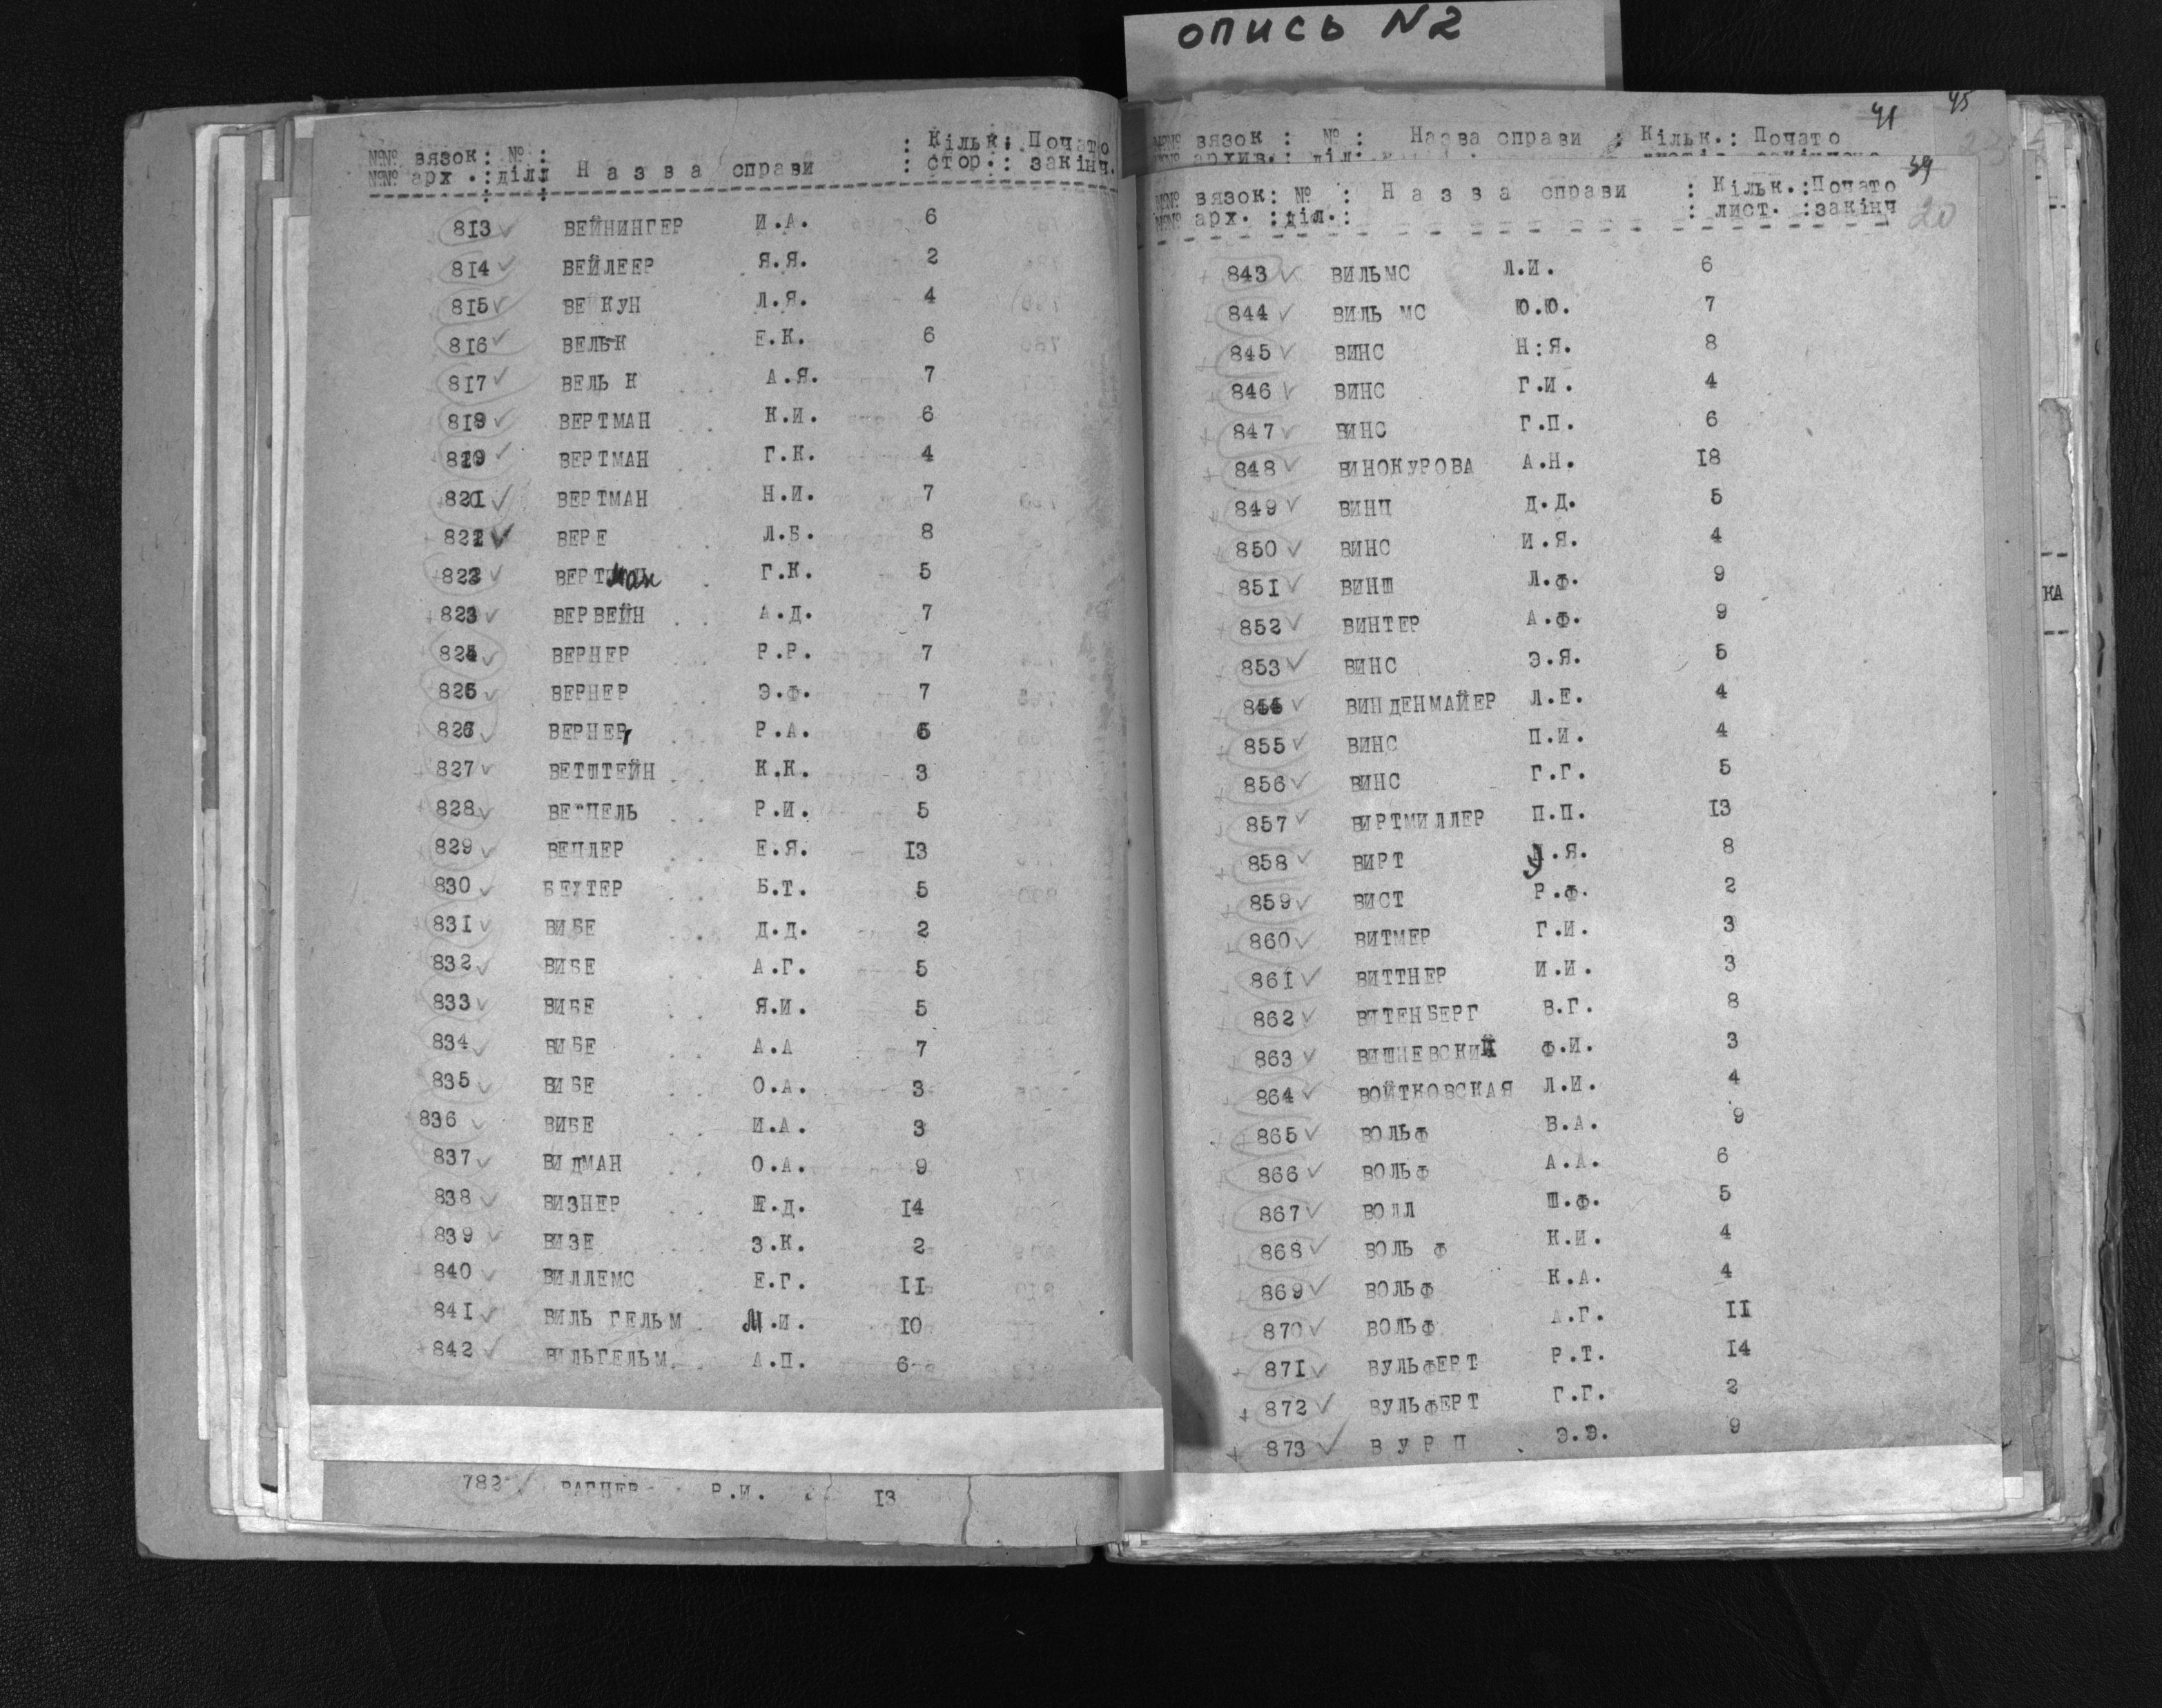 опись N2
№№ вязок: № : : Кільк: Почато
№№ арх .: діл Н а з в а справи : стор.: закінч.
813 ВЕЙНИНГЕР И.А. 6
814 ВЕЙЛЕЕР Я.Я. 2
815 ВЕ КУН Л.Я. 4
816 ВЕЛЬК Е.К. 6
817 ВЕЛЬ К А.Я. 7
818 ВЕРТМАН К.И. 6
819 ВЕРТМАН Г.К. 4
820 ВЕРТМАН Н.И. 7
821 ВЕРЕ Л.Б. 8
822 ВЕРТман Г.К. 5
823 ВЕРВЕЙН А.Д. 7
824 ВЕРНЕР Р.Р. 7
825 ВЕРНЕР Э.Ф. 7
826 ВЕРНЕР Р.А. 6
827 ВЕТШТЕЙН К.К. 3
828 Р.И. 5
829 ВЕЦЛЕР Е.Я. 13
830 БЕХТЕР Б.Т. 5
831 ВИБЕ Д.Д. 2
832 ВИБЕ А.Г. 5
833 ВИБЕ Я.И. 5
834 ВИБЕ А.А 7
835 ВИБЕ О.А. 3
836 ВИБЕ И.А. 3
837 ВИДМАН О.А. 9
838 ВИЗНЕР Е.Д. 14
839 ВИЗЕ З.К. 2
840 ВИЛЛЕМС Е.Г. 11
841 ВИЛЬ ГЕЛЬМ М.И. 10
842 ВИЛЬГЕЛЬМ А.П. 6
782 ВАГНЕР Р.И. 13
41 45
№№ вязок : № : Назва справи : Кільк.: Почато
№№ архив.: діл:
39
№№ вязок: № : Н а з в а справи : Кільк.:Почато
№№ арх. :діл.: : лист. :закінч
20
843 ВИЛЬМС Л.И. 6
844 ВИЛЬ МС Ю.Ю. 7
845 ВИНС Н:Я. 8
846 ВИНС Г.И. 4
847 ВИНС Г.П. 6
848 ВИНОКУРОВА А.Н. 18
849 ВИНЦ Д.Д. 5
850 ВИНС И.Я. 4
851 ВИНШ Л.Ф. 9
852 ВИНТЕР А.Ф. 9
853 ВИНС Э.Я. 5
854 ВИНДЕНМАЙЕР Л.Е. 4
855 ВИНС П.И. 4
856 ВИНС Г.Г. 5
857 ВИРТМИЛЛЕР П.П. 13
858 ВИРТ Э.Я. 8
859 ВИСТ Р.Ф. 2
860 ВИТМЕР Г.И. 3
861 ВИТТНЕР И.И. 3
862 ВИТЕНБЕРГ В.Г. 8
863 ВИШНЕВСКИЙ Ф.И. 3
864 ВОЙТКОВСКАЯ Л.И. 4
865 ВОЛЬФ В.А. 9
866 ВОЛЬФ А.А. 6
867 ВОЛЛ Ш.Ф. 5
868 ВОЛЬ Ф К.И. 4
869 ВОЛЬФ К.А. 4
870 ВОЛЬФ А.Г. 11
871 ВУЛЬФЕРТ Р.Т. 14
872 ВУЛЬФЕРТ Г.Г. 2
873 В У Р Ц Э.Э. 9
КА